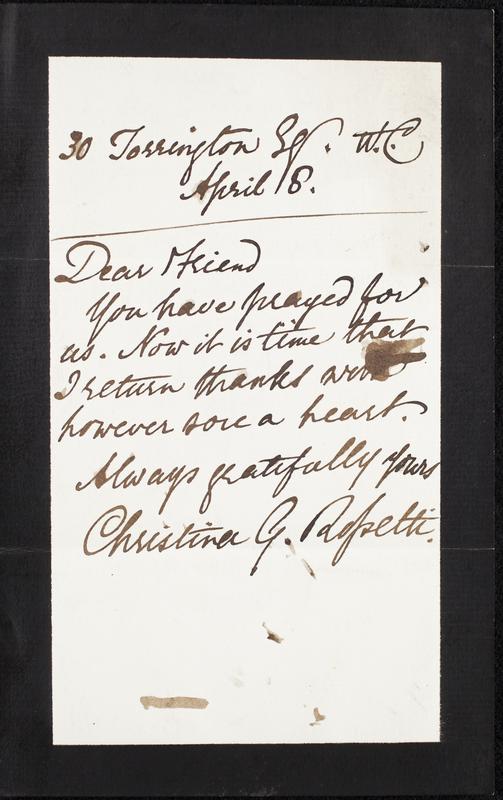 30 Torrington Sq. W.C.
April 8.
Dear Friend
You have prayed for
us. Now it is time that
I return thanks with
however sore a heart.
Always gratefully yours
Christina G. Rossetti.